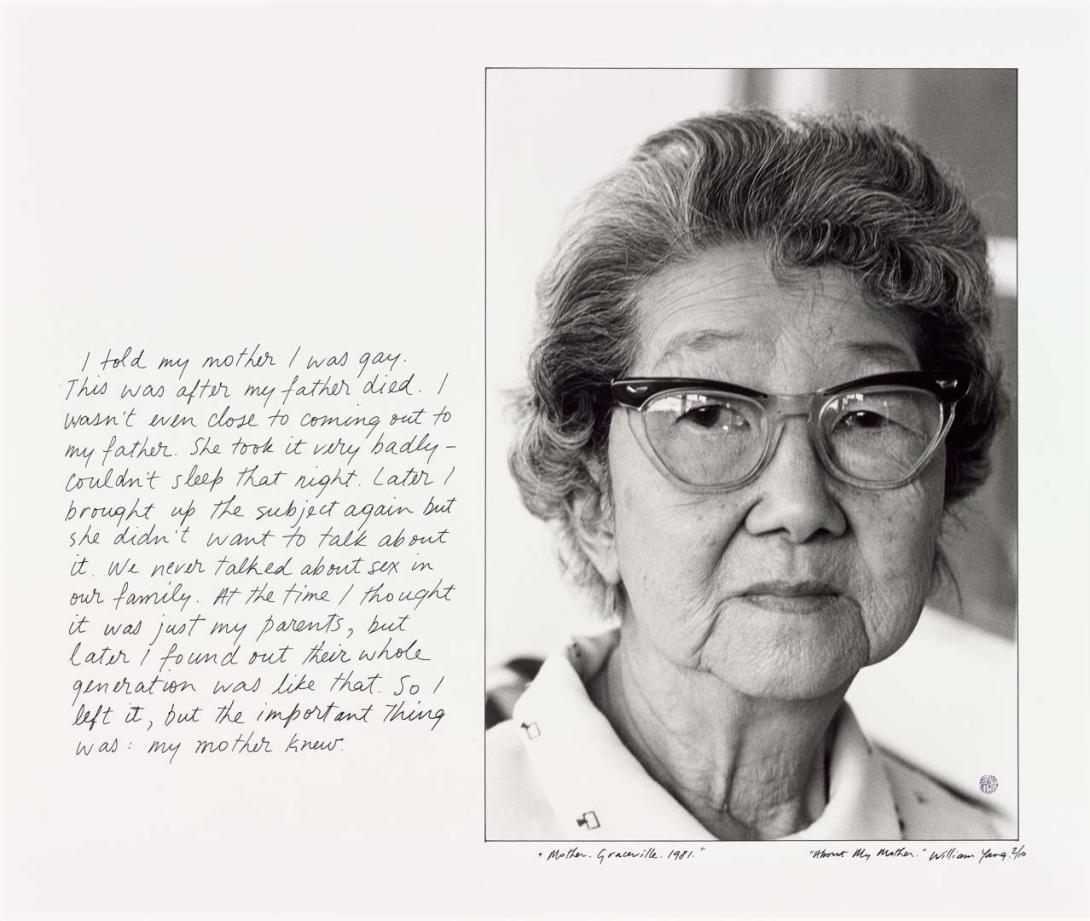 I told my mother I was gay.
This was after my father died. I
wasn't even close to coming out to
my father. She took it very badly –
couldn't sleep that night. Later I
brought up the subject again but
she didn't want to talk about
it. We never talked about sex in
our family. At the time I thought
it was just my parents, but
later I found out their whole
generation was like that. So I
left it, but the important thing
was: my mother knew.
"Mother. Graceville. 1981."
"About My Mother." William Yang. 2/10